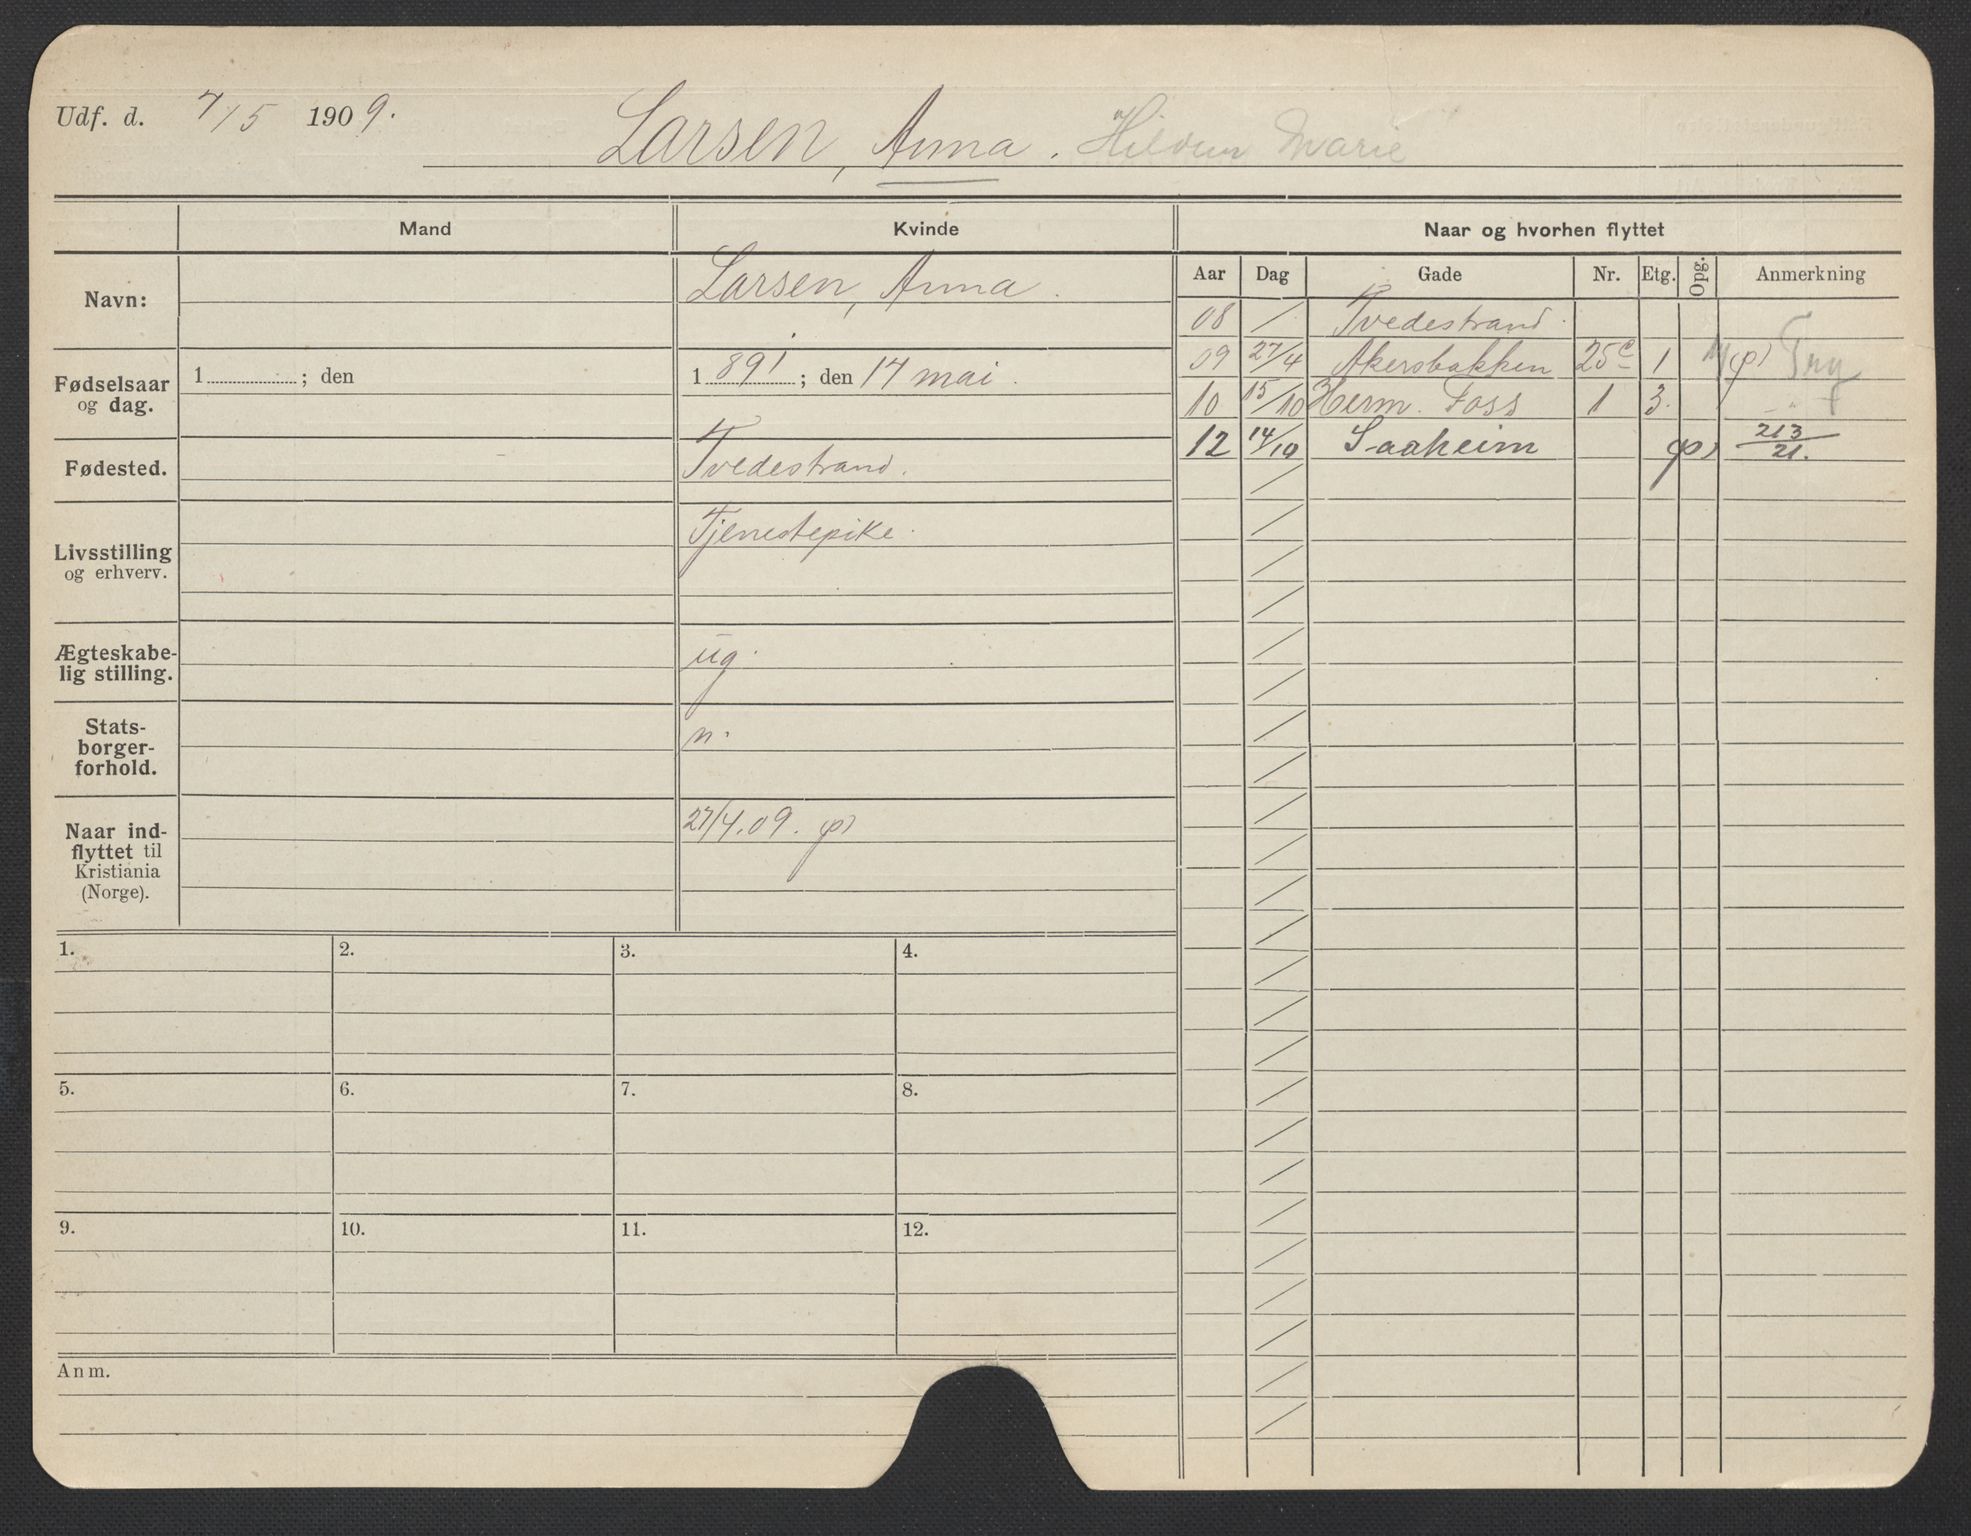 Udf. d. 7/5 1909. Larsen, Anna. Marie
Mand Kvinde Naar og hvorhen flyttet
Navn: Larsen, Anna.
Aar Dag Gade Nr. Etg. Opg. Anmerkning
08 / Tvedestrand.
Fødselsaar og dag. 1 ; den 1891 ; den 14 mai.
09 27/4 Akersbakken 25c 1 φ)
10 15/10 Herm. Foss 1 3. - " -
12 14/10 Saaheim φ) 213/21.
Fødested. Tvedestrand.
Livsstilling og erhverv. Tjenestepike.
Ægteskabe-
lig stilling. ug.
Stats-
borger-
forhold. n.
Naar ind-
flyttet til
Kristiania
(Norge). 27/4.09. φ)
1. 2. 3. 4.
5. 6. 7. 8.
9. 10. 11. 12.
Anm.